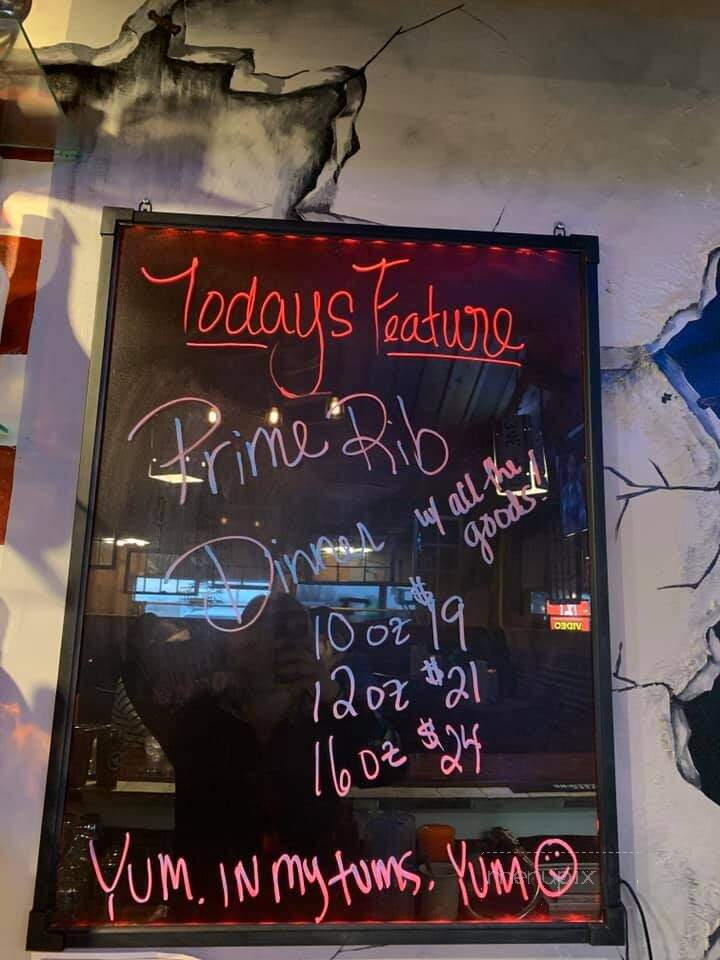 Todays Feature
Prime Rib
w/ all the
goods!
Dinner
10 oz $19
12 oz $21
16 oz $24
Yum. IN my tums. Yum
menupix
VIDEO